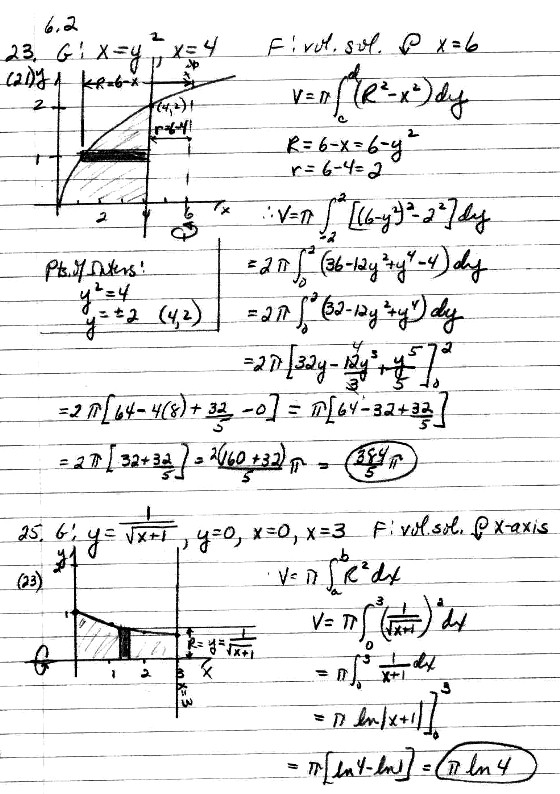 6.2
23. G: x=y², x=4 F: vol. sol. x=6
(21) y
R=6-x
2
(4,2)
r=6-4
1
2 4 6 x
V=π∫_c^d (R²-x²)dy
R=6-x=6-y²
r=6-4=2
∴V=π∫_{-2}^{2} [(6-y²)²-2²]dy
Pts. of Inters:
y²=4
y=±2 (4,2)
=2π∫_0^2 (36-12y²+y⁴-4)dy
=2π∫_0^2 (32-12y²+y⁴)dy
=2π[32y-12y³/3+y⁵/5]_0^2
4
=2π[64-4(8)+32/5-0]=π[64-32+32/5]
=2π[32+32/5]=2(160+32)/5 π = 384/5 π
25. G: y=1/√(x+1), y=0, x=0, x=3 F: vol. sol. x-axis
(23)
y
2
1
R=y=1/√(x+1)
1 2 3 x
x=3
V=π∫_a^b R²dx
V=π∫_0^3 (1/√(x+1))²dx
=π∫_0^3 1/(x+1) dx
=π ln|x+1|]_0^3
=π[ln4-ln1]=π ln 4